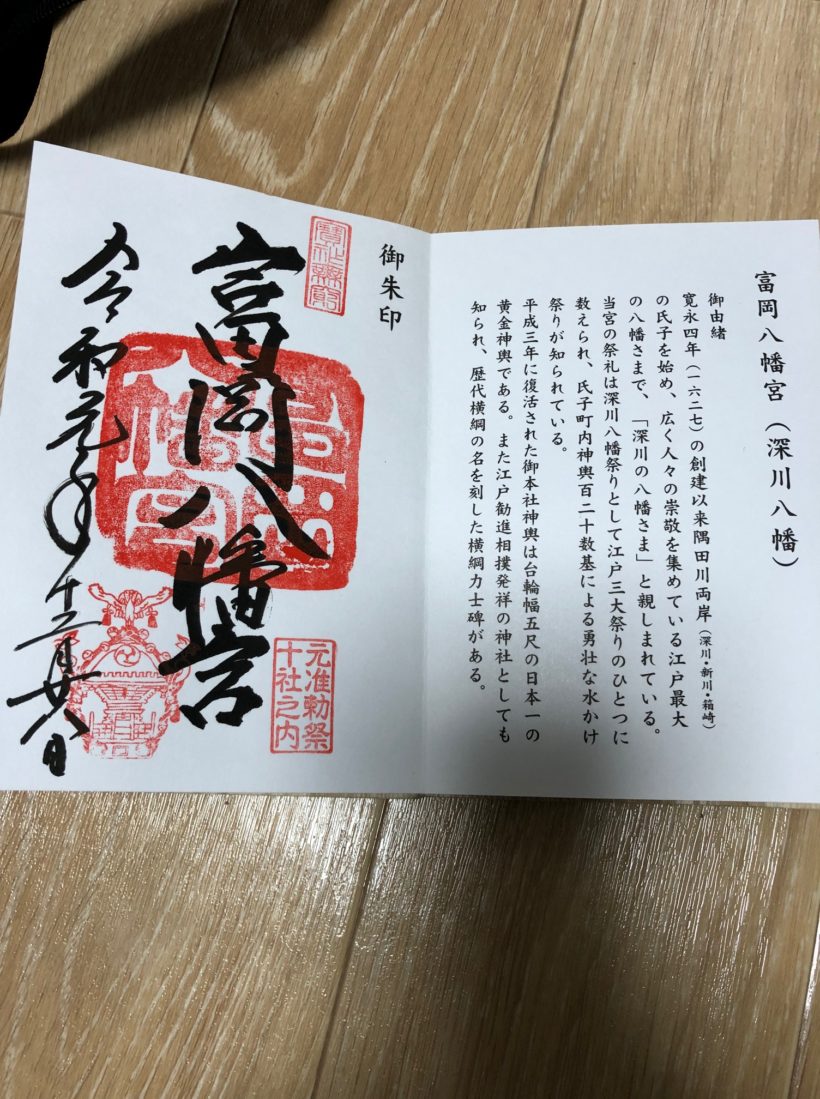 富岡八幡宮（深川八幡）
御由緒
寛永四年（一六二七）の創建以来隅田川両岸（深川・新川・箱崎）
の氏子を始め、広く人々の崇敬を集めている江戸最大
の八幡さまで、「深川の八幡さま」と親しまれている。
当宮の祭礼は深川八幡祭りとして江戸三大祭りのひとつに
数えられ、氏子町内神輿百二十数基による勇壮な水かけ
祭りが知られている。
平成三年に復活された御本社神輿は台輪幅五尺の日本一の
黄金神輿である。また江戸勧進相撲発祥の神社としても
知られ、歴代横綱の名を刻した横綱力士碑がある。
御朱印
元准勅祭
十社之内
富岡八幡宮
令和元年十二月廿八日